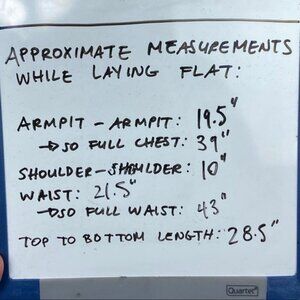 APPROXIMATE MEASUREMENTS
WHILE LAYING FLAT:
ARMPIT - ARMPIT: 19.5"
→ SO FULL CHEST: 39"
SHOULDER-SHOULDER: 10"
WAIST: 21.5"
→ SO FULL WAIST: 43"
TOP TO BOTTOM LENGTH: 28.5"
Quartet